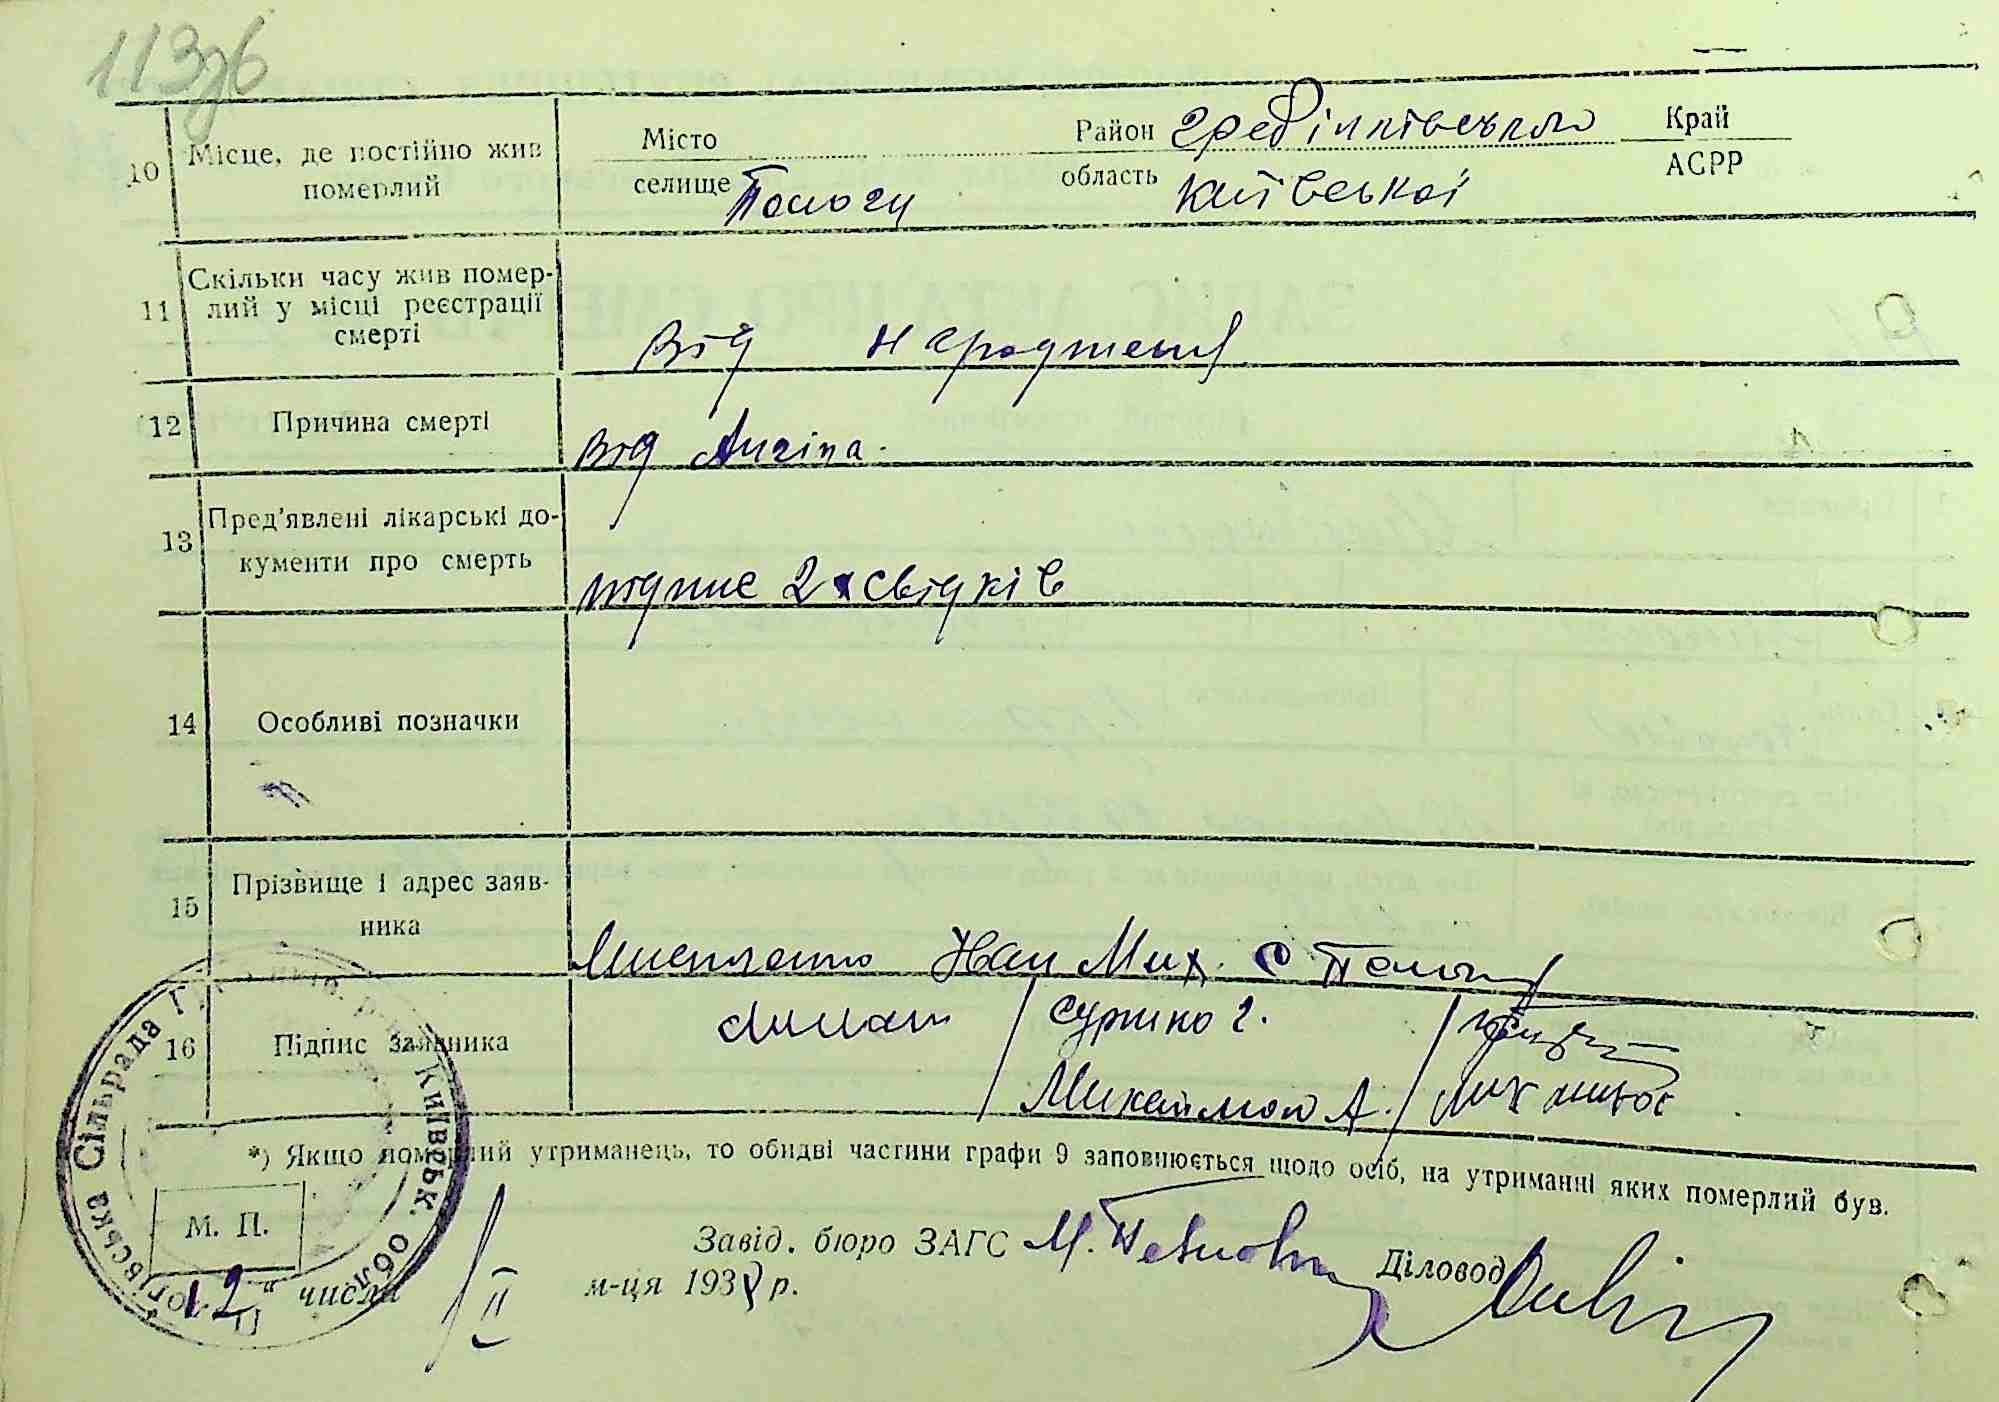 113зв
10 Місце, де постійно жив померлий
Місто
селище Пологи
Район Гребінківського
область Київської
Край
АСРР
11 Скільки часу жив померлий у місці реєстрації смерті
від народження
12 Причина смерті
від Ангіна.
13 Пред'явлені лікарські документи про смерть
підпис 2х свідків
14 Особливі позначки
15 Прізвище і адрес заявника
Нап Мих. с Пологи
16 Підпис заявника
Суржко г.
Михайлюк А.
*) Якщо померлий утриманець, то обидві частини графи 9 заповнюється щодо осіб, на утриманні яких померлий був.
М. П.
Завід. бюро ЗАГС М.
Діловод
"12" числа II м-ця 1938 р.
Сільрада
Київськ. обл.